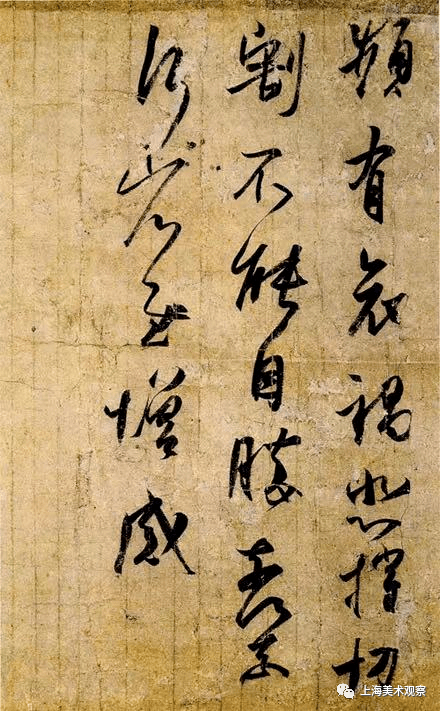 頻有哀禍悲摧切
割不能自勝奈何奈
何省慰增感
上海美术观察